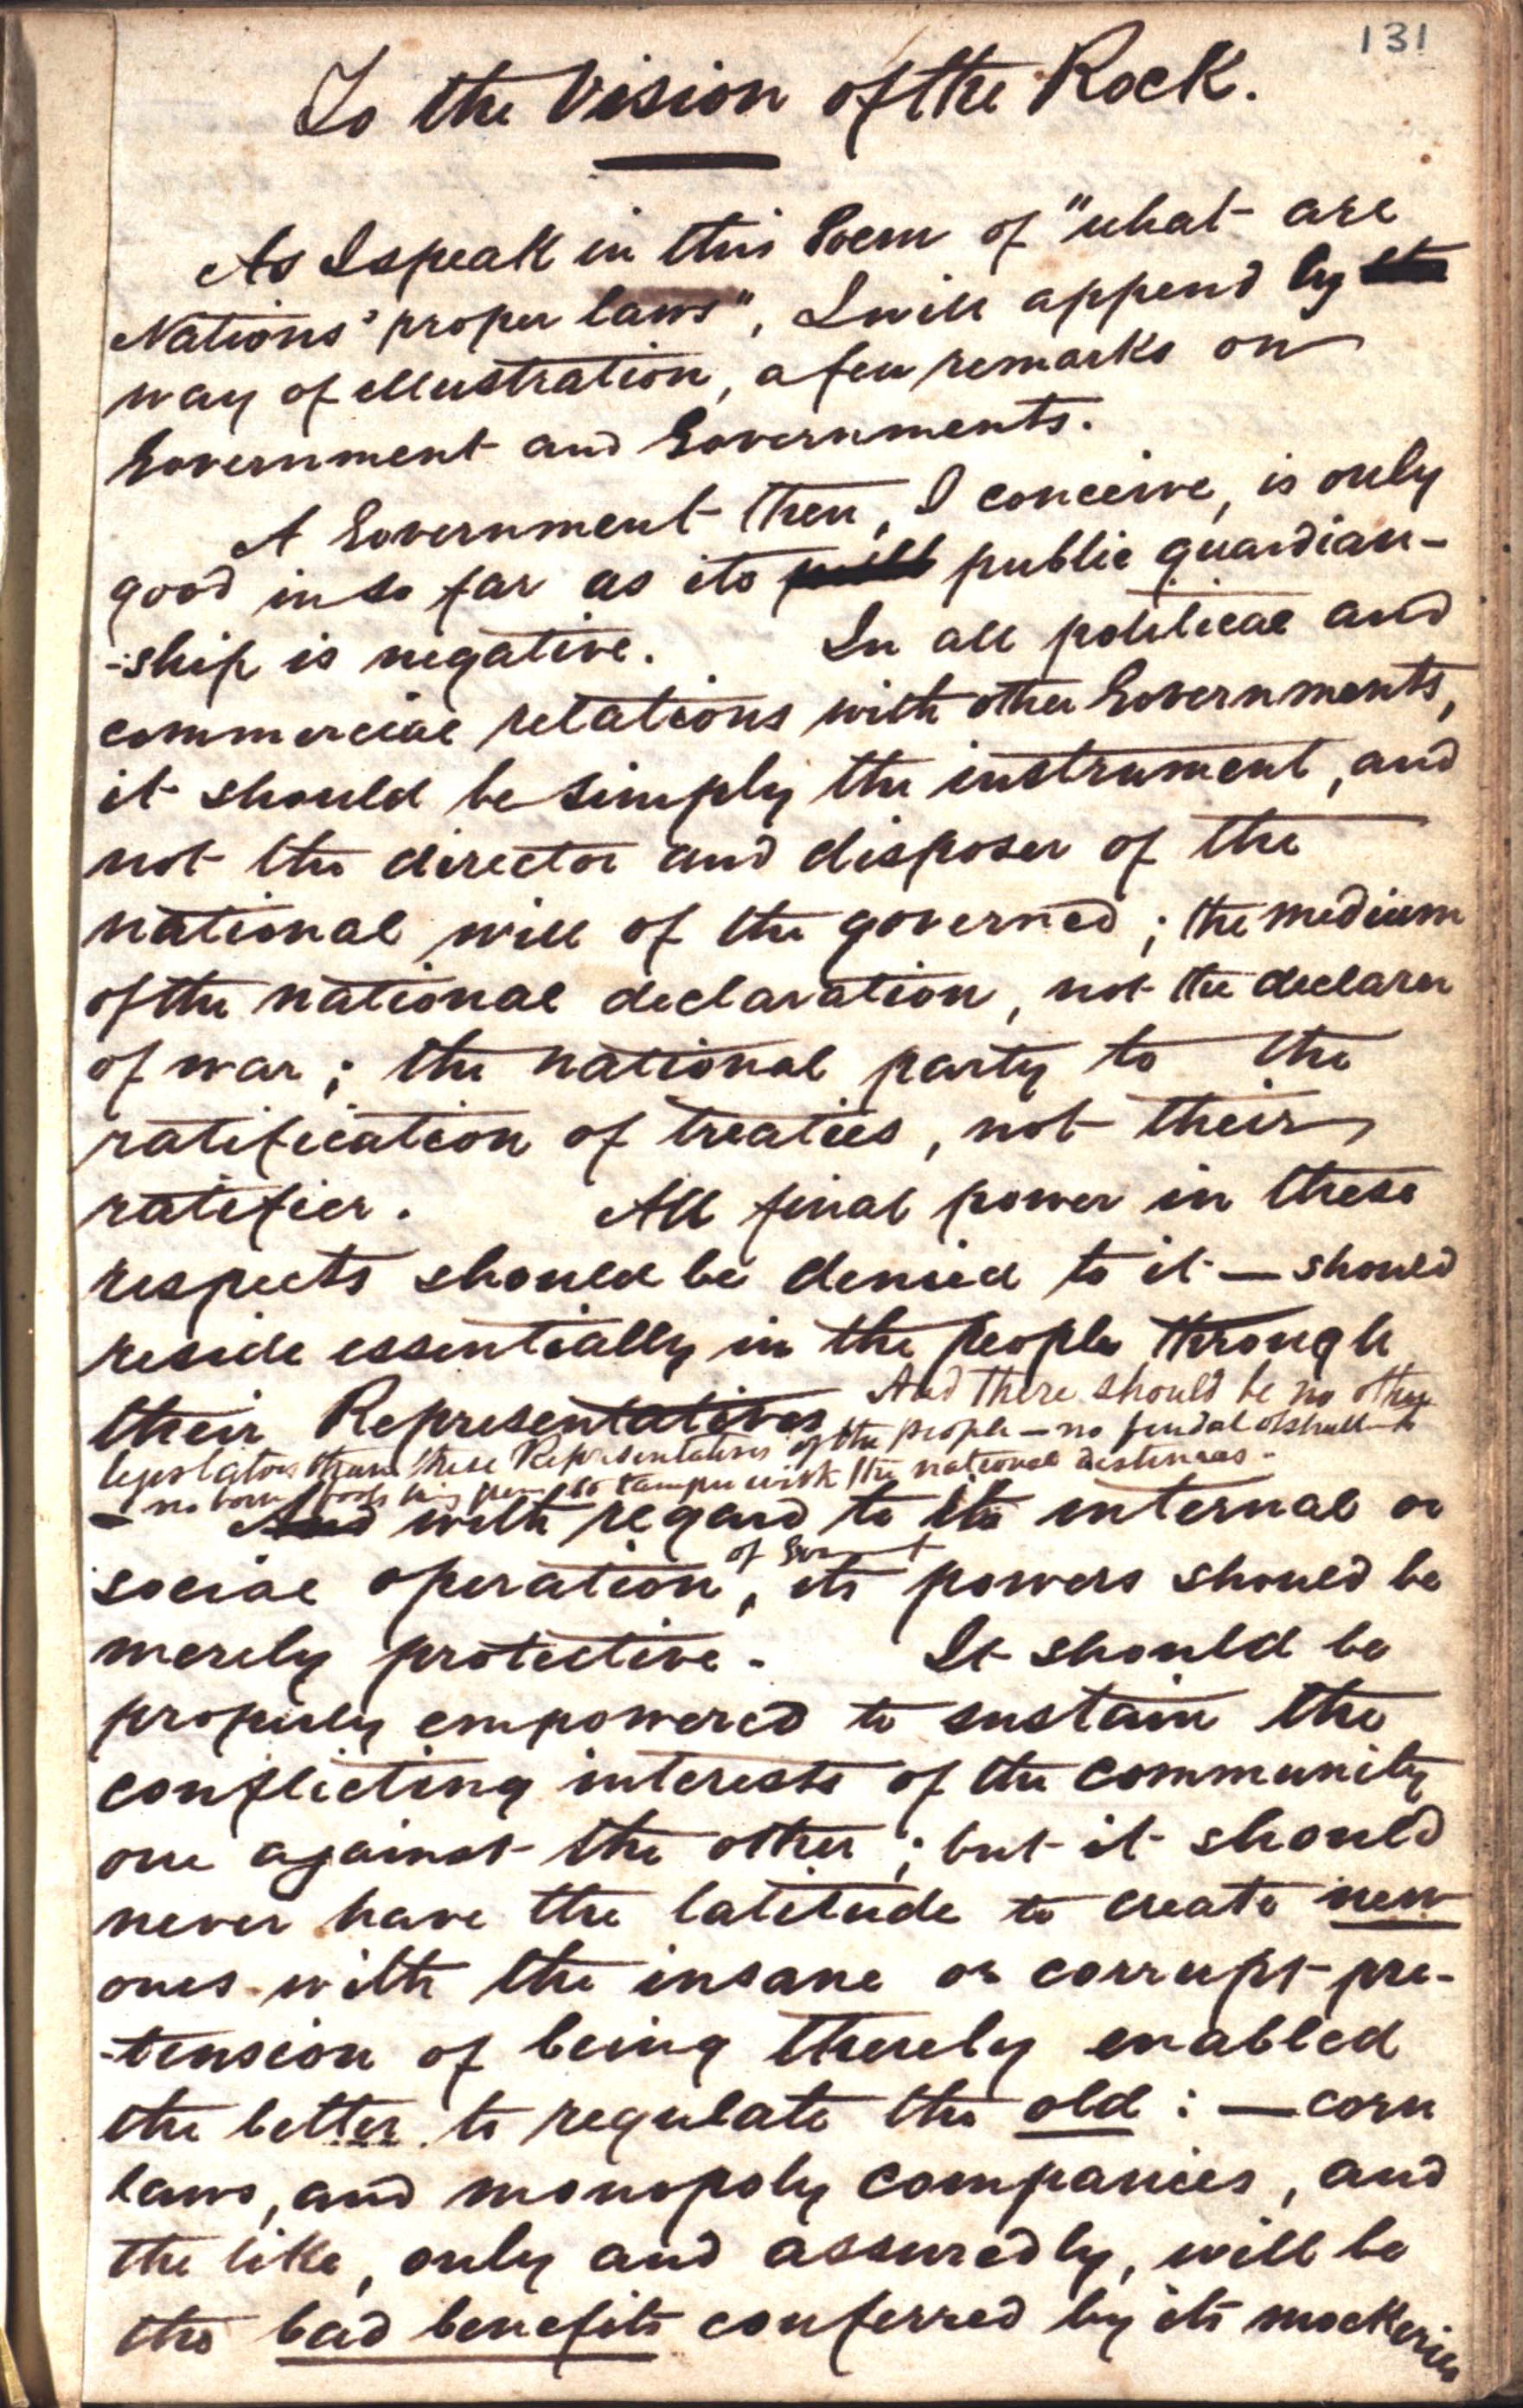 131
To the Vision of the Rock.
As I speak in this Poem of "what are
Nations' proper laws", I will append by the
way of illustration, a few remarks on
Government and Governments.
A Government then, I conceive, is only
good in so far as its public guardian-
-ship is negative. In all political and
commercial relations with other Governments,
it should be simply the instrument, and
not the director and disposer of the
national will of the governed; the medium
of the national declaration, not the declarer
of war; the national party to the
ratification of treaties, not their
ratifier. All final power in these
respects should be denied to it — should
reside essentially in the people through
their Representatives And there should be no other
legislators than these Representatives of the people — no feudal obstruct
— no born to tamper with the national destinies.
And with regard to the internal or
social operation of Govt, its powers should be
merely protective. It should be
properly empowered to sustain the
conflicting interests of the community
one against the other; but it should
never have the latitude to create new
ones with the insane or corrupt pre-
-tension of being thereby enabled
the better to regulate the old: — corn
laws, and monopoly companies, and
the like, only and assuredly, will be
the bad benefits conferred by its mockeries